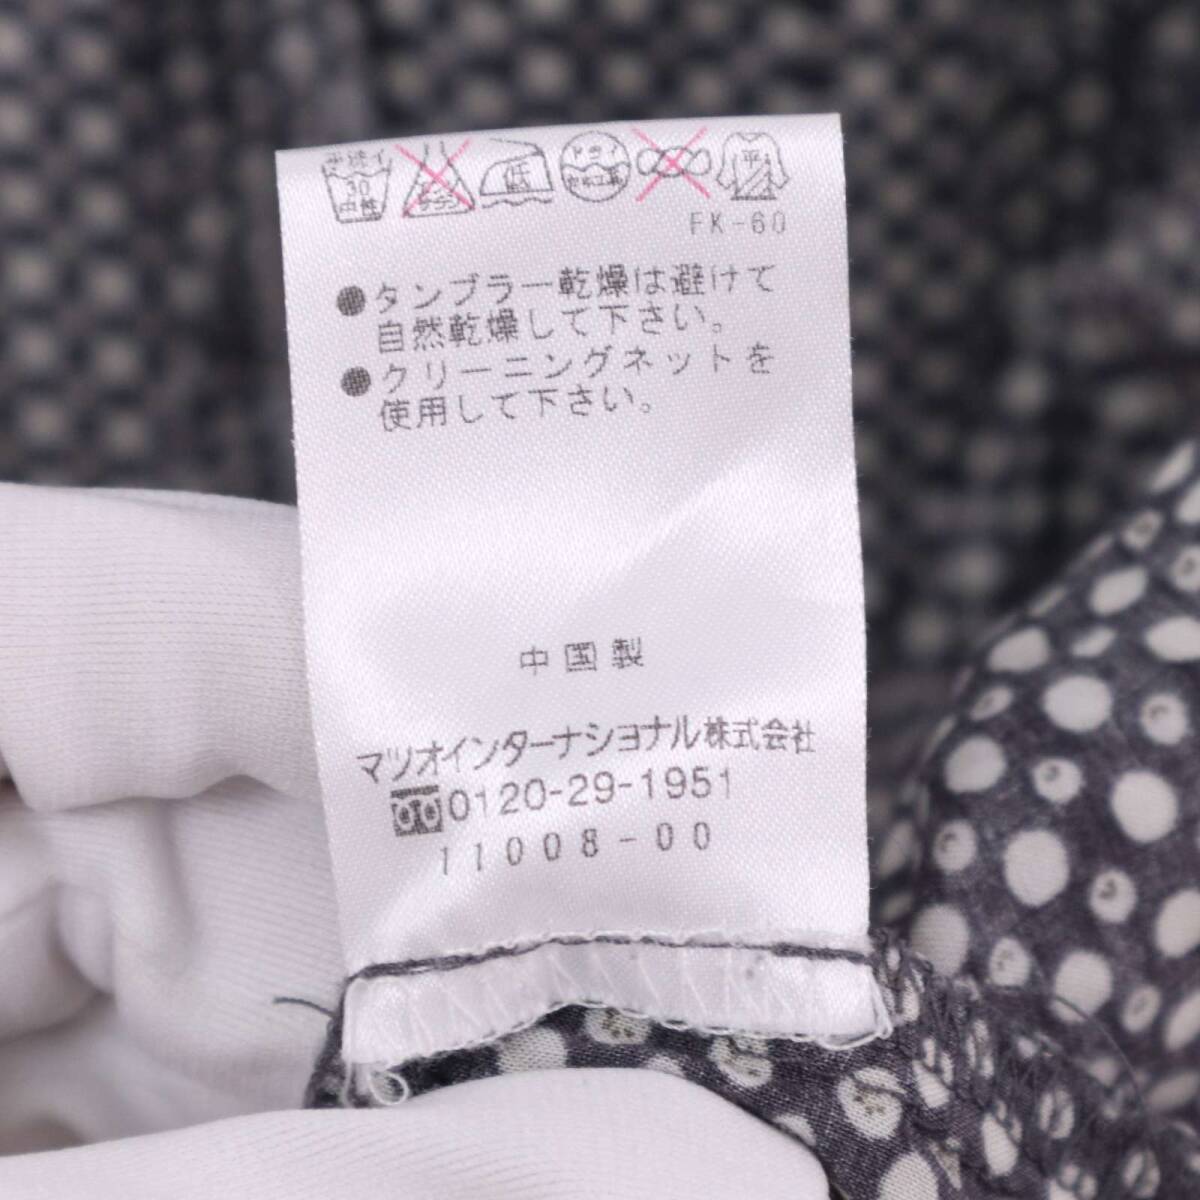 手洗イ
30
中性
エンソ
サラシ
低
ドライ
セキユ系
平
FK-60
●タンブラー乾燥は避けて
自然乾燥して下さい。
●クリーニングネットを
使用して下さい。
中国製
マツオインターナショナル株式会社
0120-29-1951
11008-00